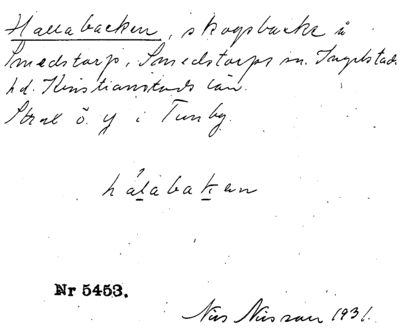 Hallabacken, skogsbacke å
Smedstorp, Smedstorps sn. Ingelstads
hd. Kristianstads län.
Strax ö. y i Tunby.
hálabakan
Nr 5453.
Nils Nilsson 1931.